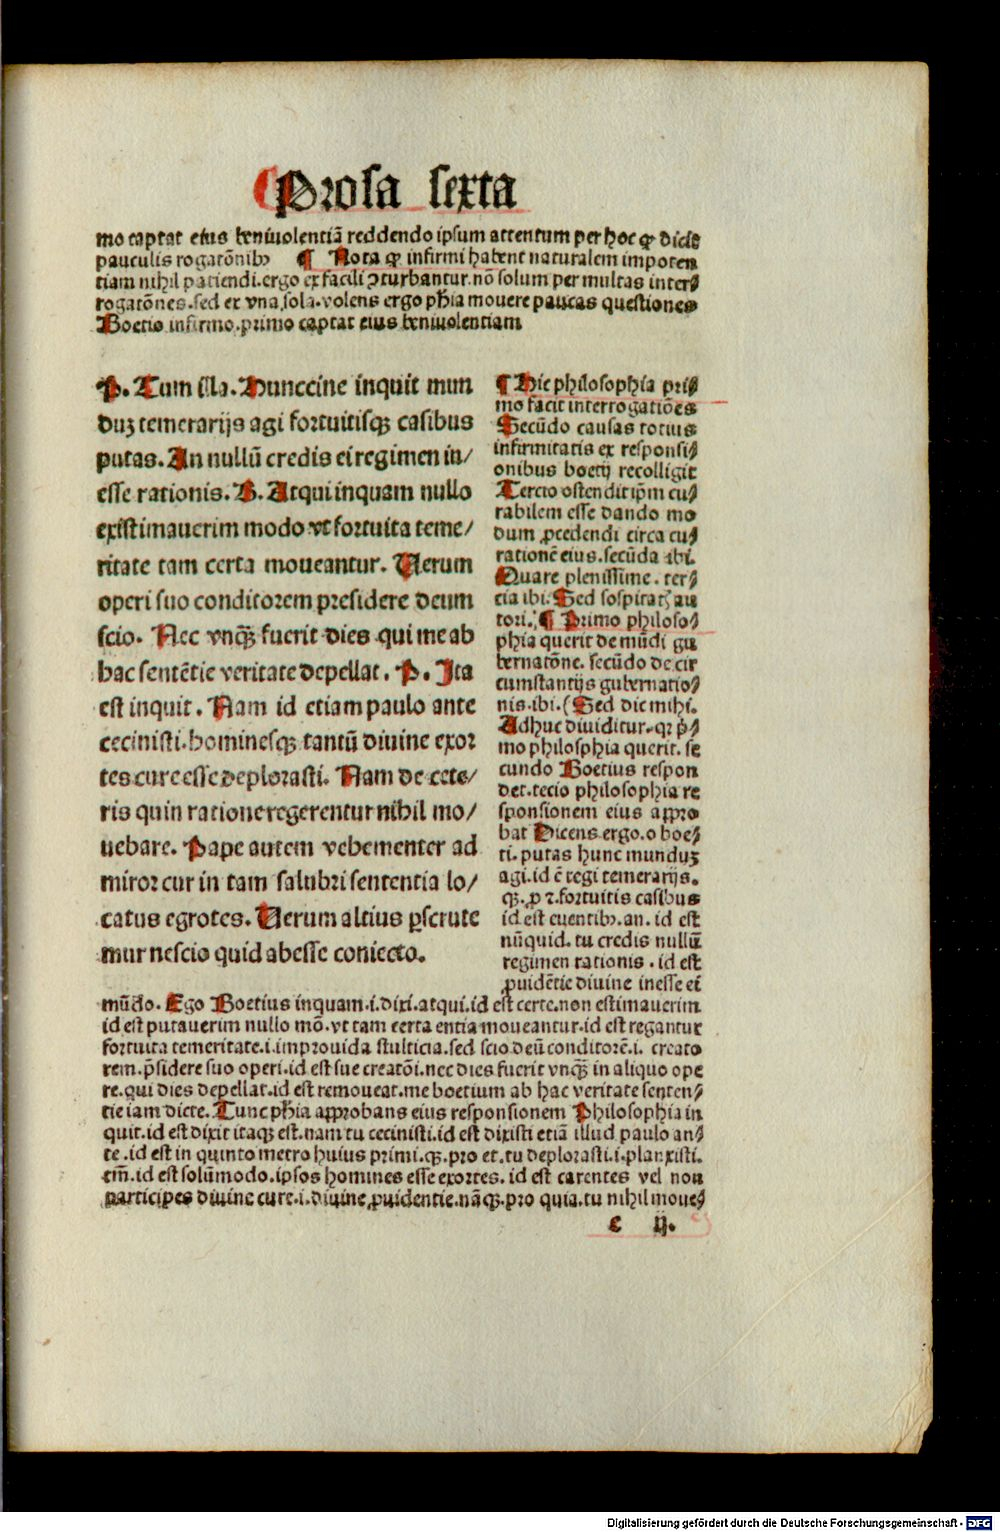 Prosa sexta
mo captat eius beniuolentiā reddendo ipsum attentum per hoc ꝙ dicit
pauculis rogatōnibꝰ ¶ Nota ꝙ infirmi habent naturalem impoten
tiam nihil patiendi.ergo ex facili ꝯturbantur.nō solum per multas inter⸗
rogatōnes.sed ex vna sola.volens ergo phīa mouere paucas questiones
Boetio infirmo.primo captat eius beniuolentiam
P. Tum illa. Hunccine inquit mun
duꝫ temerarijs agi fortuitisqꝫ casibus
putas. An nullū credis ei regimen in/
esse rationis. B. Atqui inquam nullo
existimauerim modo vt fortuita teme/
ritate tam certa moueantur. Uerum
operi suo conditorem presidere deum
scio. Nec vnqꝫ fuerit dies qui me ab
hac sentētie veritate depellat. P. Ita
est inquit. Nam id etiam paulo ante
cecinisti.hominesqꝫ tantū diuine exor
tes cure esse deplorasti. Nam de cete/
ris quin ratione regerentur nihil mo/
uebare. Pape autem vehementer ad
miror cur in tam salubri sententia lo/
catus egrotes. Uerum altius ꝑscrute
mur nescio quid abesse coniecto.
¶ Hic philosophia pri⸗
mo facit interrogatiōes
Secūdo causas totius
infirmitatis ex responsi⸗
onibus boetij recolligit
Tercio ostendit ip̄m cu⸗
rabilem esse dando mo
dum ꝓcedendi circa cu⸗
rationē eius.secūda ibi.
Quare plenissime. ter⸗
cia ibi. Sed sospitatꝭ au
tori. ¶ Primo philoso⸗
phia querit de mūdi gu
bernatōne. secūdo de cir
cumstantijs gubernatio⸗
nis.ibi.(Sed dic mihi.
Adhuc diuiditur.qꝛ p̄⸗
mo philosophia querit. se
cundo Boetius respon
det.tecio philosophia re
sponsionem eius appro
bat Dicens ergo.o boe⸗
ti. putas hunc munduꝫ
agi.id ē regi temerarijs.
qꝫ. ꝓ ⁊.fortuitis casibus
id est euentibꝰ.an. id est
nūquid. tu credis nullū
regimen rationis . id est
ꝓuidētie diuine inesse ei
mūdo. Ego Boetius inquam.i.dixi.atqui.id est certe.non estimauerim
id est putauerim nullo mō.vt tam certa entia moueantur.id est regantur
fortuita temeritate.i.improuida stulticia.sed scio deū conditorē.i. creato
rem.p̄sidere suo operi.id est sue creatōi.nec dies fuerit vnqꝫ in aliquo ope
re.qui dies depellat.id est remoueat.me boetium ab hac veritate senten⸗
tie iam dicte. Tunc phīa approbans eius responsionem Philosophia in
quit.id est dixit itaqꝫ est.nam tu cecinisti.id est dixisti etiā illud paulo an⸗
te .id est in quinto metro huius primi.qꝫ.pro et.tu deplorasti.i.planxisti.
tm̄.id est solūmodo.ipsos homines esse exortes. id est carentes vel non
participes diuine cure.i.diuine ꝓuidentie.nāqꝫ.pro quia.tu nihil moue⸗
c ij.
Digitalisierung gefördert durch die Deutsche Forschungsgemeinschaft - DFG